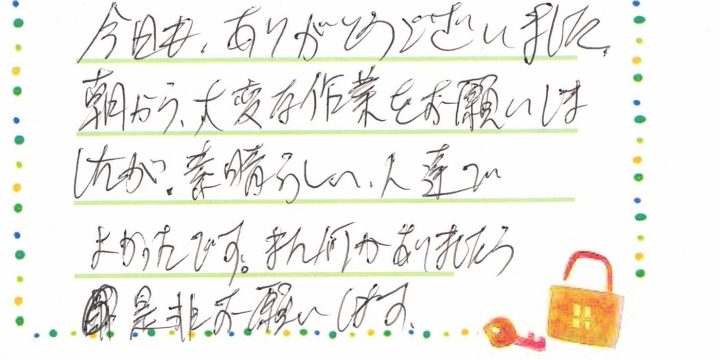 今日は、ありがとうございました。
朝から、大変な作業をお願いしま
したが、素晴らしい、人達で
よかったです。また何かありましたら
是非お願いします。